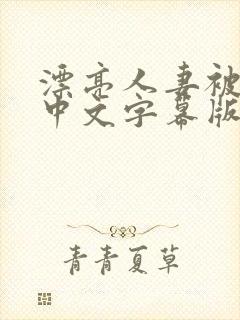 漂亮人妻被
中文字幕版
青青夏草